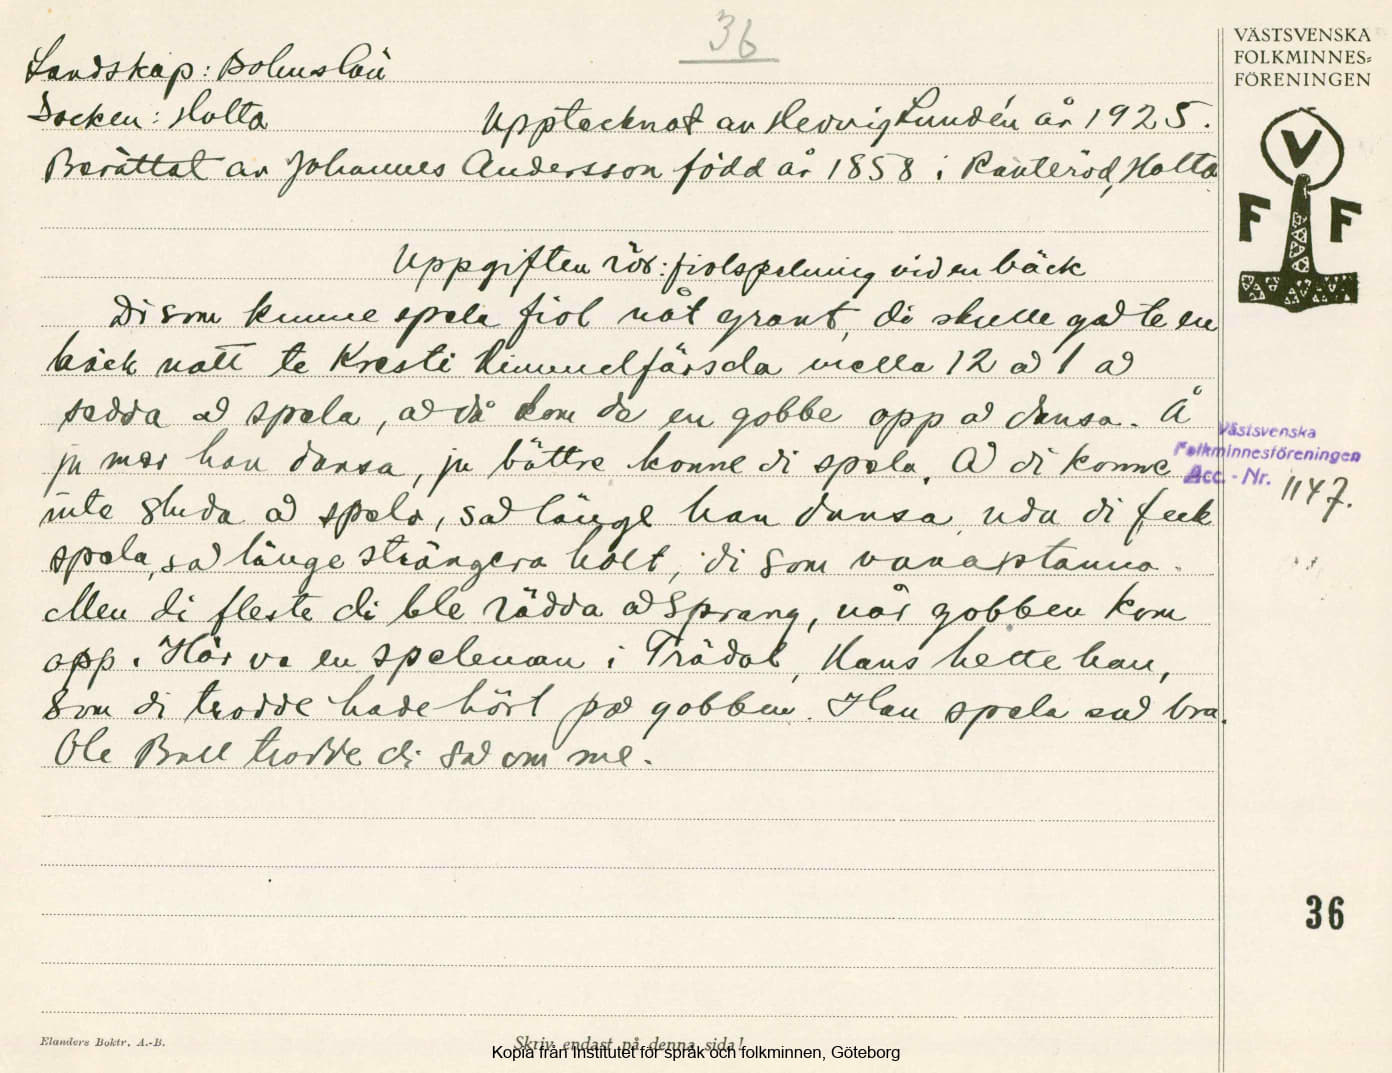 36
VÄSTSVENSKA
FOLKMINNES=
FÖRENINGEN
V
F F
Landskap: Bohuslän
Socken: Holta Upptecknat av Hedvig Lundén år 1925.
Berättat av Johannes Andersson född år 1858 i Ranteröd, Holta
Uppgiften rör: fiolspelning vid en bäck
Di som kunne spela fiol nåt grant, di skulle gad te en
bäck natt te Kresti Himmelfärsda mella 12 ad 1 ad
sedda ad spela, ad då kom de en gobbe opp ad dansa. Å
ju mer han dansa, ju bättre konne di spela. Ad di konne
inte sluda ad spela, sad länge han dansa, udu di feck
spela, sad länge strängera holt, di som va
Men di fleste di ble rädda ad sprang, när gobben kom
opp. Här va en speleman i Trädal, Hans hette han,
som di trodde hade hört pad gobben. Han spela sad bra.
Ole Bull trodde di sad om me.
Västsvenska
Folkminnesföreningen
Acc. - Nr. 1147.
36
Elanders Boktr. A.-B.
Skriv endast på denna sida!
Kopia från Institutet för språk och folkminnen, Göteborg